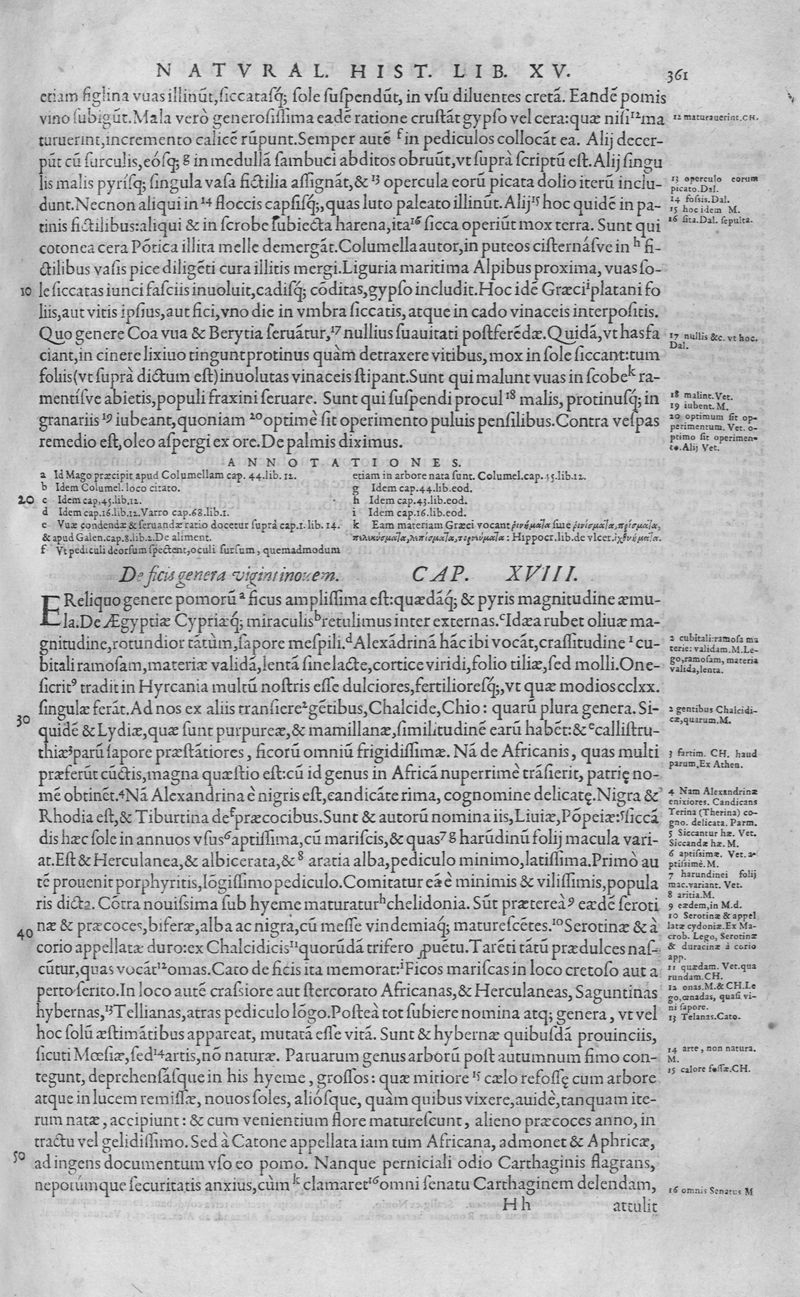 NATVRAL. HIST. LIB. XV. 361
etiam figlina vuas illinūt,ſiccataſq; ſole ſuſpendūt, in vſu diluentes cretā. Eandē pomis
vino ſubigūt.Mala verò generoſiſſima eadē ratione cruſtāt gypſo vel cera:quæ niſi 12 ma
turuerint,incremento calicē rūpunt.Semper autē f in pediculos collocāt ea. Alij decer-
pūt cū ſurculis,eóſq; g in medullā ſambuci abditos obruūt,vt ſuprà ſcriptū eſt.Alij ſingu
lis malis pyríſq; ſingula vaſa fictilia aſſignāt,& 13 opercula eorū picata dolio iterū inclu-
dunt.Necnon aliqui in 14 floccis capſiſq;,quas luto paleato illinūt.Alij 15 hoc quidē in pa-
tinis fictilibus:aliqui & in ſcrobe ſubiecta harena,ita 16 ſicca operiūt mox terra. Sunt qui
cotonea cera Pōtica illita melle demergāt.Columella autor,in puteos ciſternáſve in h fi-
ctilibus vaſis pice diligēti cura illitis mergi.Liguria maritima Alpibus proxima, vuas ſo-
10 le ſiccatas iunci faſciis inuoluit,cadiſq; cōditas,gypſo includit.Hoc idē Græci i platani fo
liis,aut vitis ipſius,aut fici,vno die in vmbra ſiccatis, atque in cado vinaceis interpoſitis.
Quo genere Coa vua & Berytia ſeruātur, 17 nullius ſuauitati poſtferēdæ.Quidā,vt has fa
ciant,in cinere lixiuo tingunt protinus quàm detraxere vitibus, mox in ſole ſiccant:tum
foliis (vt ſuprà dictum eſt) inuolutas vinaceis ſtipant.Sunt qui malunt vuas in ſcobe k ra-
mentíſve abietis,populi fraxini ſeruare. Sunt qui ſuſpendi procul 18 malis, protinuſq; in
granariis 19 iubeant,quoniam 20 optimè ſit operimento puluis penſilibus.Contra veſpas
remedio eſt,oleo aſpergi ex ore.De palmis diximus.
12 maturauerint.CH.
13 operculo eorum
picato.Dal.
14 foſsis.Dal.
15 hoc idem M.
16 ſita.Dal. ſepulta.
17 nullis &c. vt hoc.
Dal.
18 malint.Vet.
19 iubent.M.
20 optimum ſit op-
perimentum. Vet. o-
ptimo ſit operimen-
to.Alij Vet.
ANNOTATIONES.
a Id Mago præcipit apud Columellam cap. 44.lib. 12.
b Idem Columel. loco citato.
20 c Idem cap.45.lib.12.
d Idem cap.16.lib.12.Varro cap.68.lib.1.
e Vuæ condendæ & ſeruandæ ratio docetur ſuprà cap.1.lib. 14.
& apud Galen.cap.8.lib.2.De aliment.
f Vt pediculi deorſum ſpectent,oculi ſurſum, quemadmodum
etiam in arbore nata ſunt. Columel.cap.45.lib.12.
g Idem cap.44.lib.eod.
h Idem cap.43.lib.eod.
i Idem cap.16.lib.eod.
k Eam materiam Græci vocant
: Hippocr.lib.de vlcer.
De ficis genera vigintinouem. CAP. XVIII.
E Reliquo genere pomorū a ficus ampliſſima eſt:quædāq; & pyris magnitudine æmu-
la.De Ægyptiæ Cypriæq; miraculis b retulimus inter externas. c Idæa rubet oliuæ ma-
gnitudine,rotundior tātùm,ſapore meſpili. d Alexādrinā hāc ibi vocāt,craſſitudine 1 cu-
bitali ramoſam,materiæ validā,lentā ſine lacte,cortice viridi,folio tiliæ,ſed molli.One-
ſicrit 9 tradit in Hyrcania multū noſtris eſſe dulciores,fertilioreſq;,vt quæ modios cclxx.
ſingulæ ferāt.Ad nos ex aliis tranſiere 2 gētibus,Chalcide,Chio: quarū plura genera. Si-
30 quidē & Lydiæ,quæ ſunt purpureæ,& mamillanæ,ſimilitudinē earū habēt:& e calliſtru-
thiæ 3 parū ſapore præſtātiores, ficorū omniū frigidiſſimæ. Nā de Africanis, quas multi
præferūt cūctis,magna quæſtio eſt:cū id genus in Africā nuperrimè trāſierit, patrię no-
mē obtinēt. 4 Nā Alexandrina è nigris eſt,candicāte rima, cognomine delicatę.Nigra &
Rhodia eſt,& Tiburtina de f præcocibus.Sunt & autorū nomina iis,Liuiæ,Pōpeiæ: 5 ſiccā
dis hæc ſole in annuos vſus 6 aptiſſima,cū mariſcis,& quas 7 g harūdinū folij macula vari-
at.Eſt & Herculanea,& albicerata,& 8 aratia alba,pediculo minimo,latiſſima.Primò au
tē prouenit porphyritis,lōgiſſimo pediculo.Comitatur eā è minimis & viliſſimis,popula
ris dicta. Cōtra nouiſsima ſub hyeme maturatur h chelidonia. Sūt præterea 9 eædē ſeroti
næ & præcoces,biferæ,alba ac nigra,cū meſſe vindemiáq; matureſcētes. 10 Serotinæ & à
40 corio appellatæ duro:ex Chalcidicis 11 quorūdā trifero puētu.Tarēti tātū prædulces naſ-
cūtur,quas vocāt 12 omas.Cato de ficis ita memorat: i Ficos mariſcas in loco cretoſo aut a
perto ſerito.In loco autē craſsiore aut ſtercorato Africanas,& Herculaneas, Saguntinas
hybernas, 13 Tellianas,atras pediculo lōgo.Poſteà tot ſubiere nomina atq; genera, vt vel
hoc ſolū æſtimātibus appareat, mutatā eſſe vitā. Sunt & hybernæ quibuſdā prouinciis,
ſicuti Mœſiæ,ſed 14 artis,nō naturæ. Paruarum genus arborū poſt autumnum fimo con-
tegunt, deprehenſáſque in his hyeme, groſſos: quæ mitiore 15 cælo refoſſę cum arbore
atque in lucem remiſſæ, nouos ſoles, alióſque, quàm quibus vixere,auidè,tanquam ite-
rum natæ, accipiunt: & cum venientium flore matureſcunt, alieno præcoces anno, in
tractu vel gelidiſſimo. Sed à Catone appellata iam tum Africana, admonet & Aphricæ,
50 ad ingens documentum vſo eo pomo. Nanque perniciali odio Carthaginis flagrans,
nepotúmque ſecuritatis anxius,cùm k clamaret 16 omni ſenatu Carthaginem delendam,
H h attulit
1 cubitali:ramoſa ma
terie: validam.M.Le-
go,ramoſam, materia
valida,lenta.
2 gentibus Chalcidi-
cæ,quarum.M.
3 fartim. CH. haud
parum,Ex Athen.
4 Nam Alexandrinæ
enixiores. Candicans
Terina (Therina) co-
gno. delicata. Parm.
5 Siccantur hæ. Vet.
Siccandæ hæ. M.
6 aptiſsimæ. Vet. a-
ptiſsimè.M.
7 harundinei folij
mac.variant. Vet.
8 aritia.M.
9 eædem,in M.d.
10 Serotinæ & appel
latæ cydoniæ.Ex Ma-
crob. Lego, Serotinæ
& duracinæ à corio
app.
11 quædam. Vet.qua
rundam.CH.
12 onas.M.& CH.Le
go,œnadas, quaſi vi-
ni ſapore.
13 Telanas.Cato.
14 arte, non natura.
M.
15 calore foſſæ.CH.
16 omnis Senatus M